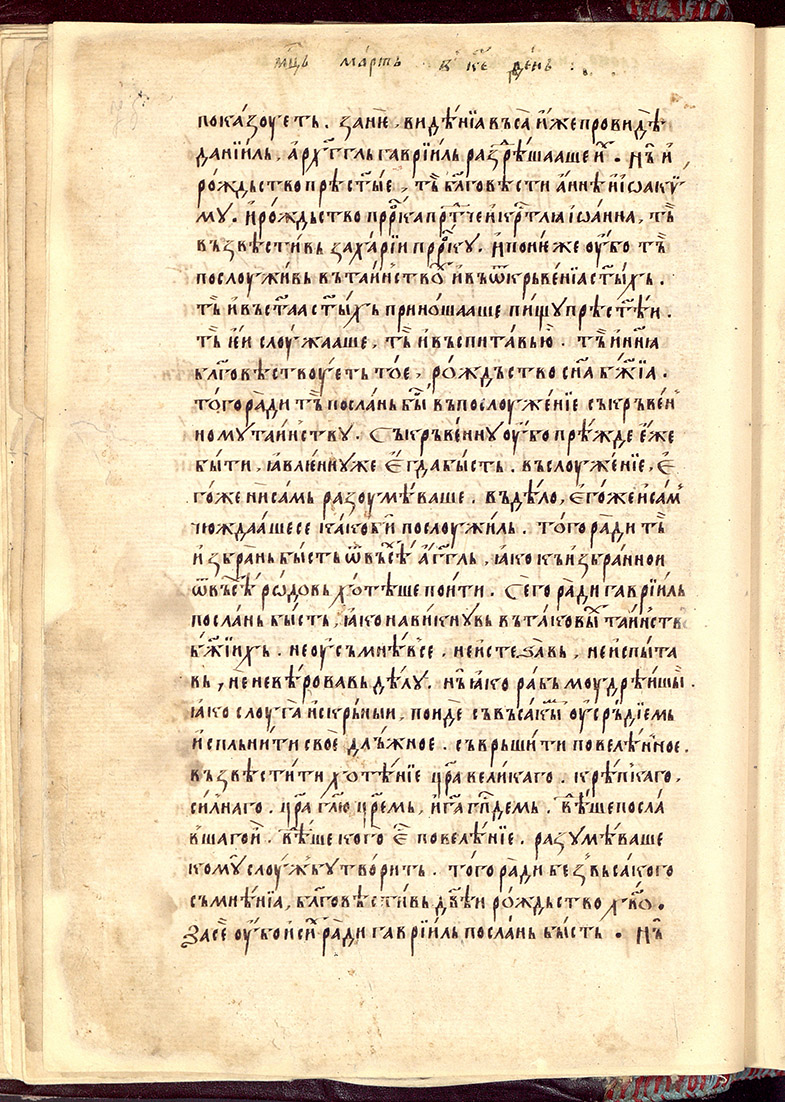 мⷭ҇ць ма́рть в҆ к҃е де́нь :
пока́зꙋеть . зане́ѥ , виде́нїа въса̀ и҆́же провидѣ̀
данїи́ль , а҆рхⷢ҇гль гаврїи́ль разрѣ́шааше и҆̀ . нъ̀ и҆
ро́ждьство прѣсⷮ҇ые , тъ̀ бл҃говѣсти а҆́ннѣ и҆ і҆ѡакѵ̀
му . и҆ ро́ждьство прⷪ҇рка прⷣ҇тче и҆ крⷭ҇тлꙗ і҆ѡа́нна , тъ̀
възвѣсти́вь заха́рїи прⷪ҇рку . и҆ поние́же ѹ҆́бо тъ̀
послоу́живь въ таи́нствѹ и҆ въ ѿкръве́нїа ст҃ы́хь .
тъ̀ и҆ въ ст҃аа ст҃ы́хь прино́шааше пи́щу прѣст҃ѣ́и .
тъ̀ ѥ҆́и слоу́жааше , тъ̀ и҆ въспита́вью . тъ̀ и҆ нн҃ꙗ
бл҃говѣ́ствоуеть то́е , ро́ждьство сн҃а бж҃їа .
того́ ра́ди тъ̀ посла́нь бы́ въ послоуже́нїе съкръве́н
номꙋ таи́нству . Съкръве́нну ѹ҆́бо прѣ́жде е҆́же
бы́ти , ꙗ҆вле́ннꙋ же є҆гда бы́сть . въ слоуже́нїе , є҆
го́же ни са́мь разоумѣ́ваше . въ дѣ́ло , є҆го́же и҆ са́мь
чюжда́аше се ка́ко би послоужи́ль . того́ ра́ди тъ̀
и҆збра́нь бы́сть ѿ въсѣ́х а҆́гг҃ль , ꙗ҆́ко къ и҆збра́ннои
ѿ въсѣ́х ро́довь хо́теше пои́ти . Сего́ ра́ди гаврїи́ль
посла́нь бы́сть , ꙗ҆́ко нави́кнꙋвь въ такови́х таи́нств
бж҃їи́хь . не ѹ҆съмнѣ́в се . не и҆стеза́вь , не и҆спы́та
вь , не невѣ́ровавь дѣ́лꙋ . нъ̀ ꙗ҆́ко ра́бь моудрѣ́ишы̀ .
ꙗ҆́ко слоуга̀ и҆скрьны́и , пои́де съ въса́кым ѹ҆сръ́дїемь
и҆спль́нити своѐ длъ́жное . съврьши́ти повелѣ́нное .
възвѣсти́ти хотѣ́нїе цр҃а вели́каго . крѣ́пкаго ,
си́лнаго . цр҃а гл҃ю цр҃емь , и҆ гⷭ҇а гпⷭ҇демь . вѣ́ше посла
вшаго и҆̀ . вѣ́ше кого̀ є҆́ⷭ повелѣ́нїе . разꙋмѣ́ваше
комꙋ̀ слоу́жбꙋ твори́ть . того́ ра́ди без въса́кого
съмнѣ́нїа , бл҃говѣсти́вь дв҃ѣи ро́ждьство хв҃о .
За сѐ ѹ҆́бо и҆ си́х ра́ди гаврїи́ль посла́нь бы́сть . нъ̀